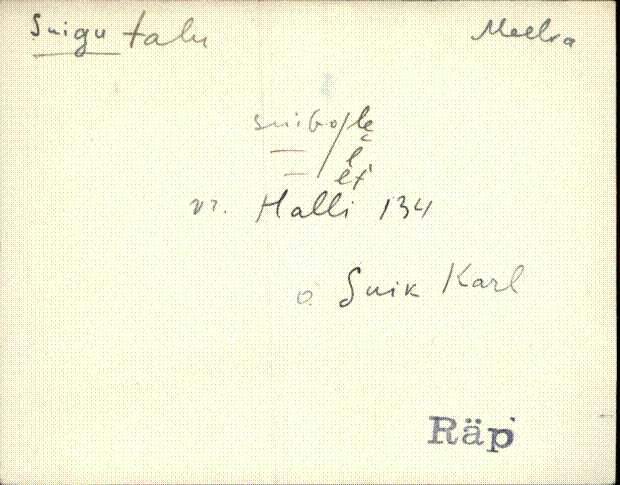 Suigu talu Meelva
suigo/le̬
l
lt
vr. Halli 134
o. Suik Karl
Räp